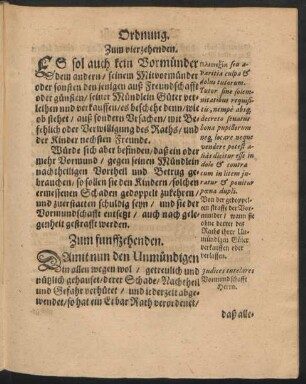 Ordnung.
Zum vierzehenden.
ES sol auch kein Vormünder
dem andern / seinem Mitvormünder
oder sonsten den jenigen auß Freundschafft
oder günsten / seiner Mündlein Güter ver-
leihen und verkauffen / es beschehe denn / wie
ob stehet / auß sondern Ursachen / mit Be-
fehlich oder Verwilligung des Raths / und
der Kinder nechsten Freunde.
Würde sich aber befinden / daß ein oder
mehr Vormund / gegen seinen Mündlein
nachtheiligen Vortheil und Betrug ge-
brauchen / so sollen sie den Kindern / solchen
ermessenen Schaden gedoppelt zukehren /
und zuerstatten schuldig seyn / und sie der
Vormundschafft entsetzt / auch nach gele-
genheit gestrafft werden.
Zum funffzehenden.
DAmit nun den Unmündigen
in allen wegen wol / getreulich und
nützlich gehauset / derer Schade / Nachtheil
und Gefahr verhütet / und jederzeit abge-
wendet / so hat ein Erbar Rath verordenet /
daß alle-
seu a-
varitia culpa &
dolus tutorum.
Tutor sine solem-
nitatibus requisi-
tis, nempè absq;
decreto
bona pupillorum
neq; locare neque
vendere potest a-
liàs dicitur esse in
dolo & contra
eum in litem ju-
ratur & punitur
pœna dupli.
Von der gedoppel-
ten straffe der Vor-
münder / wenn sie
ohne vorbewust des
Raths ihrer Un-
mündigen Güter
verkauffen oder
verlassen.
Judices tutelares
Vormundschafft
Herrn.